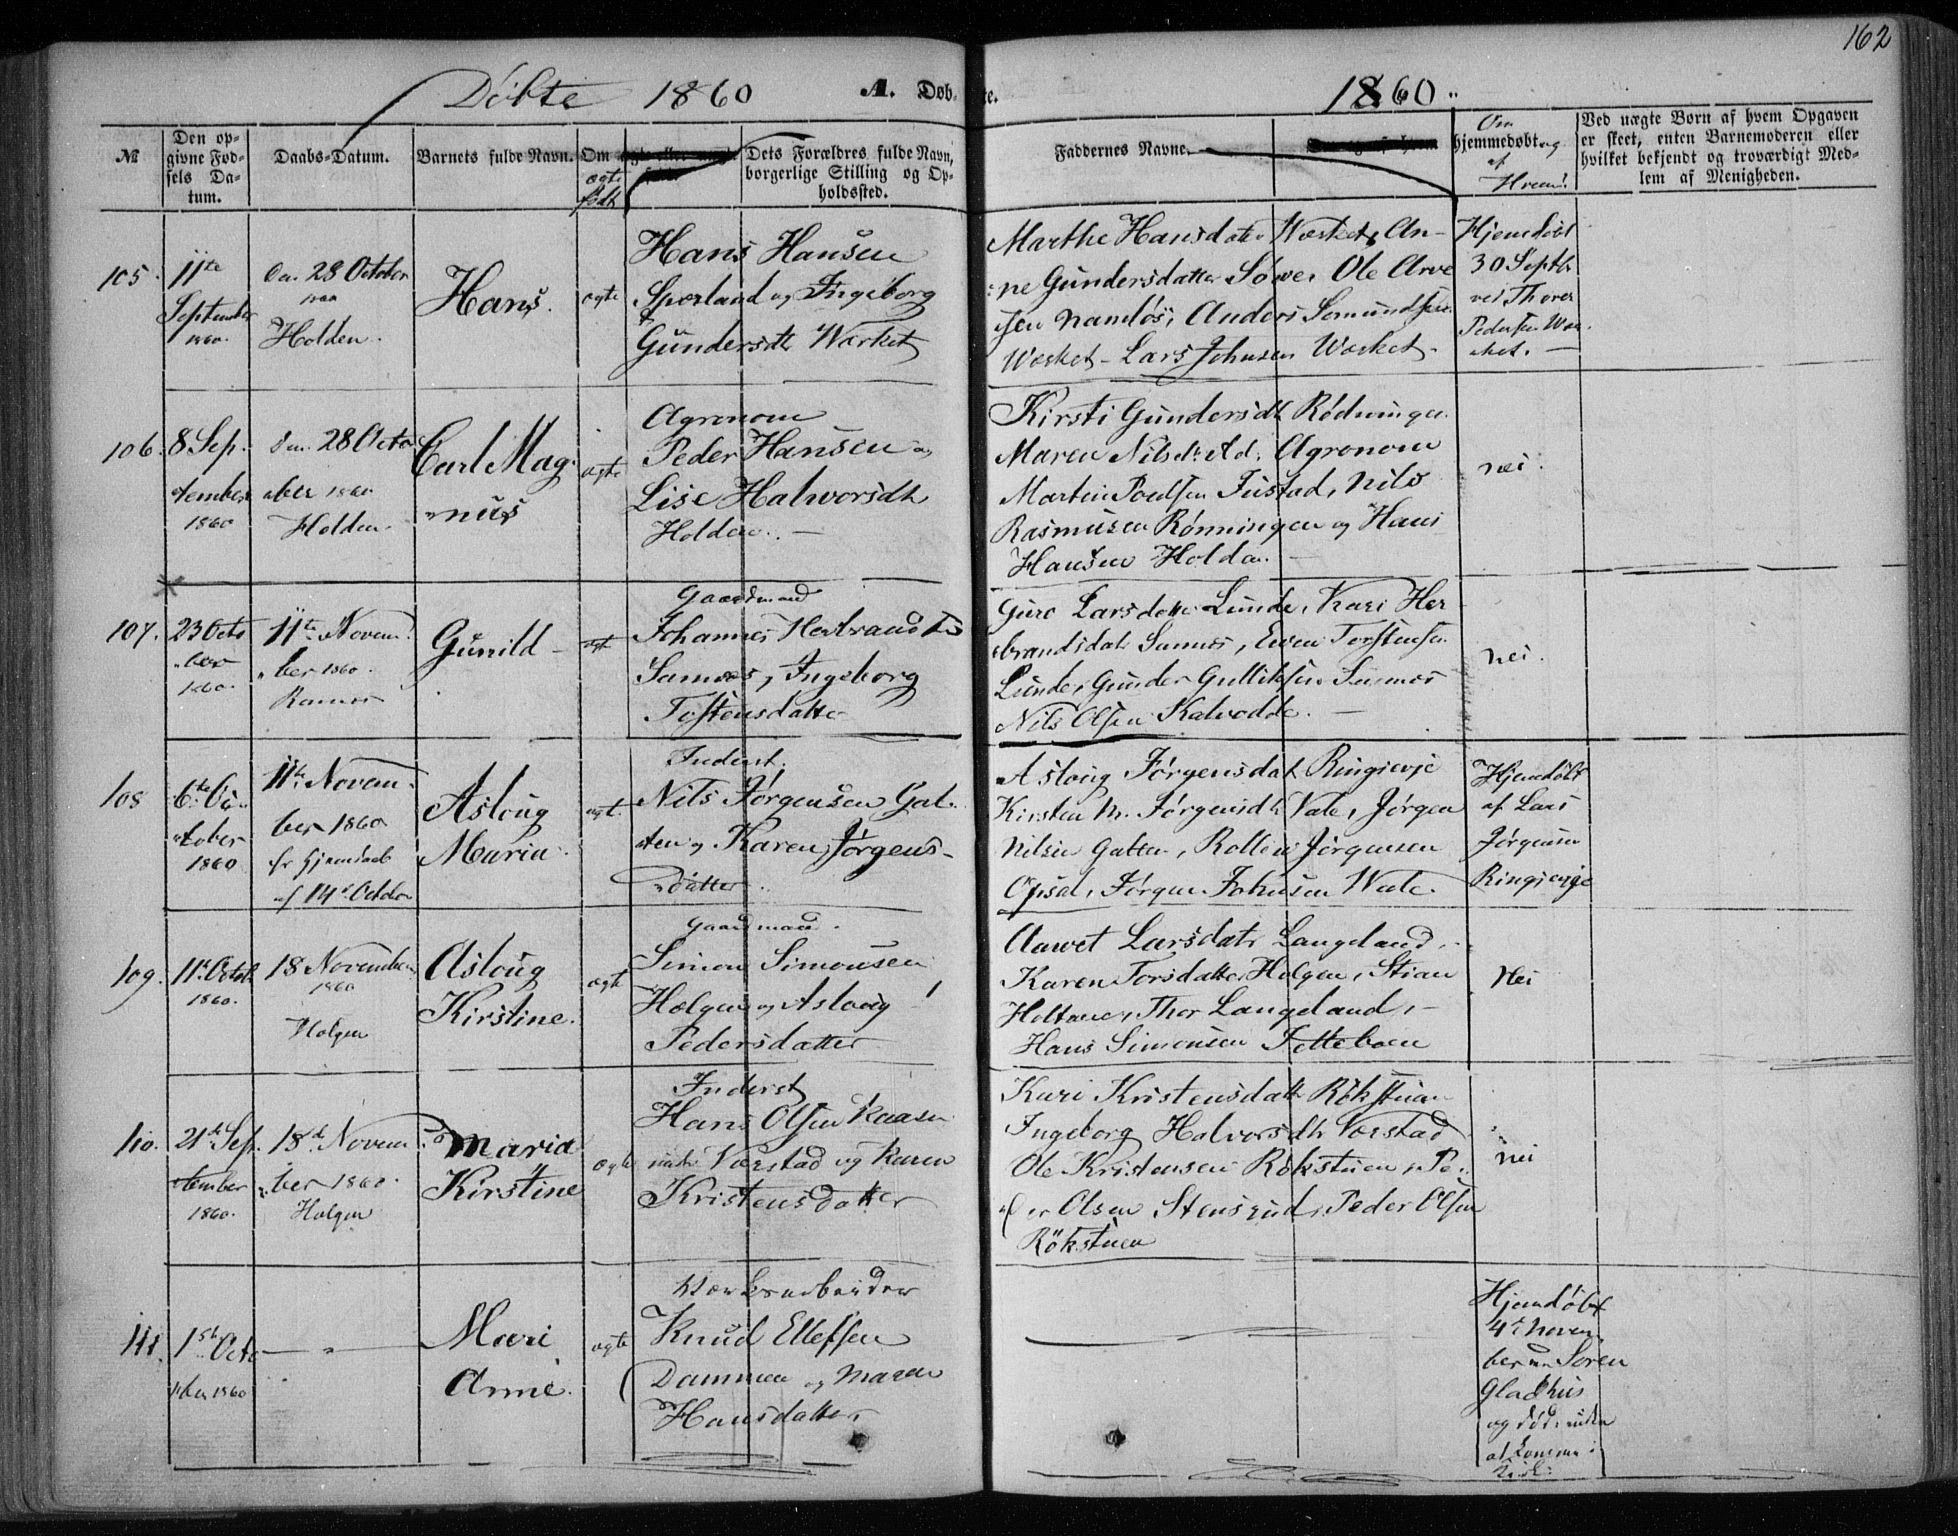 162
Döbte 1860 A. Døb- te. 1860
№
Den op-
givne Fød-
sels Da-
tum.
Daabs-Datum.
Barnets fulde Navn.
Om
ægte
født
Dets Forældres fulde Navn,
borgerlige Stilling og Op-
holdssted.
Faddernes Navne.
Om
hjemmedøbt og
af
Hvem?
Ved uægte Børn af hvem Opgaven
er skeet, enten Barnemoderen eller
hvilket bekjendt og troværdigt Med-
lem af Menigheden.
105.
11te
September
1860.
28 October
1860
Holden.
Hans.
ægte
Hans Hansen
Sperland og Ingeborg
Gundersdtr Værket
Marthe Hansdatter Værket, An-
ne Gundersdatter Sove, Ole Arve
sen Namløs, Anders Semundsen
Værket - Lars Johnsen Værket.
Hjemdøbt
30 Septbr
ved Thorer
Pedersen Vær
ket.
106.
8 Sep-
tember
1860
28 Octo
ber 1860
Holden.
Carl Mag-
nus
ægte
Agronom
Peder Hansen og
Lise Halvorsdtr
Holden.
Kirsti Gundersdtr Rødningen
Maren Nilsdtr Ad. Agronom
Martin Poulsen Fustad, Nils
Rasmusen Rønningen og Hans
Hansen Holden.
nei.
107.
23 Octo
ber
1860.
11te Novem
ber 1860.
Gunild
ægt
Gaardmand
Johannes Herbrands
Samnæs, Ingeborg
Tostensdatter
Guro Larsdatter Lunde, Kari Her
brandsdatr Samnæs, Even Torstensen
Lunde, Gunder Gulliksen Samnæs
Nils Olsen Kalvodde.
nei.
108
6te Oc
tober
1860
11te Novem
ber 1860
af 14de October
Aslaug
Maria.
ægt.
Inderst.
Nils Jørgensen Gat-
ten og Karen Jørgens-
datter.
Aslaug Jørgensdat Ringsevje
Kirsten M. Jørgensdtr Vale, Jørgen
Nilsen Gatten, Rollev Jørgensen
Opsal, Jørgen Johnsen Vale.
Hjemdøbt
af Lars
Jørgensen
Ringsevje
109.
11te Octob.
1860.
18 November
1860
Helgen
Aslaug
Kirstine.
ægte
Gaardmand.
Simon Simonsen
Helgen og Aslaug
Pedersdatter
Aawet Larsdatr Langeland.
Karen Torsdatter Helgen, Stian
Holtane, Thor Langeland,
Hans Simonsen Tetteboen
Nei
110.
21de Sep
tember
1860.
18de Novem
ber 1860.
Helgen
Maria
Kirstine
ægte
Inderst
Hans Olsen Kaasen
Værstad og Karen
Kristensdatter
Kari Kristensdatt Rökstuen
Ingeborg Halvorsdtr Værstad
Ole Kristensen Rökstuen, Pe-
der Olsen Stensrud, Peder Olsen
Rökstuen
nei
111.
1ste Octo
ber 1860
Mari
Anne.
ægte
Værksarbeider
Knud Ellefsen
Dammen og Maren
Hansdatter
Hjemdøbt
4de Novem
ber Søren
Gladhus
og død uden
at komme i
Kirke